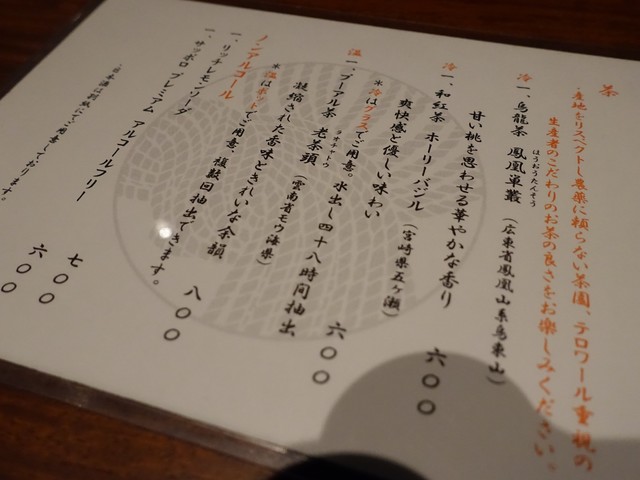 茶
・産地をリスペクトし農薬に頼らない茶園、テロワール重視の
生産者のこだわりのお茶の良さをお楽しみください。
冷 一、烏龍茶 鳳凰単叢（広東省鳳凰山系烏東山）
ほうおうたんそう
甘い桃を思わせる華やかな香り 六〇〇
冷 一、和紅茶 ホーリーバジル（宮崎県五ヶ瀬）
爽快感と優しい味わい 六〇〇
※冷はグラスでご用意。水出し四十八時間抽出
温 一、プーアル茶 老茶頭（雲南省モウ海県）
ラオチャトウ
凝縮された香味ときれいな余韻 八〇〇
※温はポットでご用意。複数回抽出できます。
ノンアルコール
一、リッチレモンソーダ 七〇〇
一、サッポロ プレミアム アルコールフリー 六〇〇